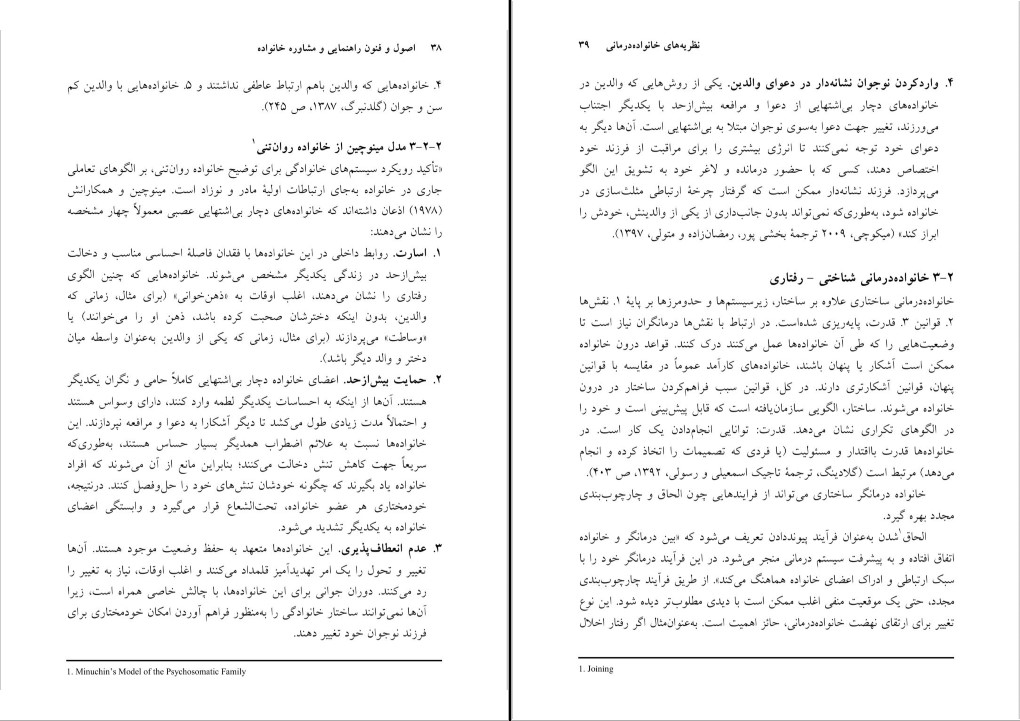 ۳۸ اصول و فنون راهنمایی و مشاوره خانواده
۴. خانواده‌هایی که والدین باهم ارتباط عاطفی نداشتند و ۵. خانواده‌هایی با والدین کم
سن و جوان (گلدنبرگ، ۱۳۸۷، ص ۲۴۵).
۳-۲-۲ مدل مینوچین از خانواده روان‌تنی۱
«تأکید رویکرد سیستم‌های خانوادگی برای توضیح خانواده روان‌تنی، بر الگوهای تعاملی
جاری در خانواده به‌جای ارتباطات اولیۀ مادر و نوزاد است. مینوچین و همکارانش
(۱۹۷۸) اذعان داشته‌اند که خانواده‌های دچار بی‌اشتهایی عصبی معمولاً چهار مشخصه
را نشان می‌دهند:
۱. اسارت. روابط داخلی در این خانواده‌ها با فقدان فاصلۀ احساسی مناسب و دخالت
بیش‌ازحد در زندگی یکدیگر مشخص می‌شوند. خانواده‌هایی که چنین الگوی
رفتاری را نشان می‌دهند، اغلب اوقات به «ذهن‌خوانی» (برای مثال، زمانی که
والدین، بدون اینکه دخترشان صحبت کرده باشد، ذهن او را می‌خوانند) یا
«وساطت» می‌پردازند (برای مثال، زمانی که یکی از والدین به‌عنوان واسطه میان
دختر و والد دیگر باشد).
۲. حمایت بیش‌ازحد. اعضای خانواده دچار بی‌اشتهایی کاملاً حامی و نگران یکدیگر
هستند. آن‌ها از اینکه به احساسات یکدیگر لطمه وارد کنند، دارای وسواس هستند
و احتمالاً مدت زیادی طول می‌کشد تا دیگر آشکارا به دعوا و مرافعه نپردازند. این
خانواده‌ها نسبت به علائم اضطراب همدیگر بسیار حساس هستند، به‌طوری‌که
سریعاً جهت کاهش تنش دخالت می‌کنند؛ بنابراین مانع از آن می‌شوند که افراد
خانواده یاد بگیرند که چگونه خودشان تنش‌های خود را حل‌وفصل کنند. درنتیجه،
خودمختاری هر عضو خانواده، تحت‌الشعاع قرار می‌گیرد و وابستگی اعضای
خانواده به یکدیگر تشدید می‌شود.
۳. عدم انعطاف‌پذیری. این خانواده‌ها متعهد به حفظ وضعیت موجود هستند. آن‌ها
تغییر و تحول را یک امر تهدیدآمیز قلمداد می‌کنند و اغلب اوقات، نیاز به تغییر را
رد می‌کنند. دوران جوانی برای این خانواده‌ها، با چالش خاصی همراه است، زیرا
آن‌ها نمی‌توانند ساختار خانوادگی را به‌منظور فراهم آوردن امکان خودمختاری برای
فرزند نوجوان خود تغییر دهند.
1. Minuchin's Model of the Psychosomatic Family
نظریه‌های خانواده‌درمانی ۳۹
۴. واردکردن نوجوان نشانه‌دار در دعوای والدین. یکی از روش‌هایی که والدین در
خانواده‌های دچار بی‌اشتهایی از دعوا و مرافعه بیش‌ازحد با یکدیگر اجتناب
می‌ورزند، تغییر جهت دعوا به‌سوی نوجوان مبتلا به بی‌اشتهایی است. آن‌ها دیگر به
دعوای خود توجه نمی‌کنند تا انرژی بیشتری را برای مراقبت از فرزند خود
اختصاص دهند، کسی که با حضور درمانده و لاغر خود به تشویق این الگو
می‌پردازد. فرزند نشانه‌دار ممکن است که گرفتار چرخۀ ارتباطی مثلث‌سازی در
خانواده شود، به‌طوری‌که نمی‌تواند بدون جانب‌داری از یکی از والدینش، خودش را
ابراز کند» (میکوچی، ۲۰۰۹ ترجمۀ بخشی پور، رمضان‌زاده و متولی، ۱۳۹۷).
۳-۲ خانواده‌درمانی شناختی - رفتاری
خانواده‌درمانی ساختاری علاوه بر ساختار، زیرسیستم‌ها و حدومرزها بر پایۀ ۱. نقش‌ها
۲. قوانین ۳. قدرت، پایه‌ریزی شده‌است. در ارتباط با نقش‌ها درمانگران نیاز است تا
وضعیت‌هایی را که طی آن خانواده‌ها عمل می‌کنند درک کنند. قواعد درون خانواده
ممکن است آشکار یا پنهان باشند، خانواده‌های کارآمد عموماً در مقایسه با قوانین
پنهان، قوانین آشکارتری دارند. در کل، قوانین سبب فراهم‌کردن ساختار در درون
خانواده می‌شوند. ساختار، الگویی سازمان‌یافته است که قابل پیش‌بینی است و خود را
در الگوهای تکراری نشان می‌دهد. قدرت: توانایی انجام‌دادن یک کار است. در
خانواده‌ها قدرت بااقتدار و مسئولیت (یا فردی که تصمیمات را اتخاذ کرده و انجام
می‌دهد) مرتبط است (گلادینگ، ترجمۀ تاجیک اسمعیلی و رسولی، ۱۳۹۲، ص ۴۰۳).
خانواده درمانگر ساختاری می‌تواند از فرایندهایی چون الحاق و چارچوب‌بندی
مجدد بهره گیرد.
الحاق۱شدن به‌عنوان فرآیند پیونددادن تعریف می‌شود که «بین درمانگر و خانواده
اتفاق افتاده و به پیشرفت سیستم درمانی منجر می‌شود. در این فرآیند درمانگر خود را با
سبک ارتباطی و ادراک اعضای خانواده هماهنگ می‌کند». از طریق فرآیند چارچوب‌بندی
مجدد، حتی یک موقعیت منفی اغلب ممکن است با دیدی مطلوب‌تر دیده شود. این نوع
تغییر برای ارتقای نهضت خانواده‌درمانی، حائز اهمیت است. به‌عنوان‌مثال اگر رفتار اخلال
1. Joining